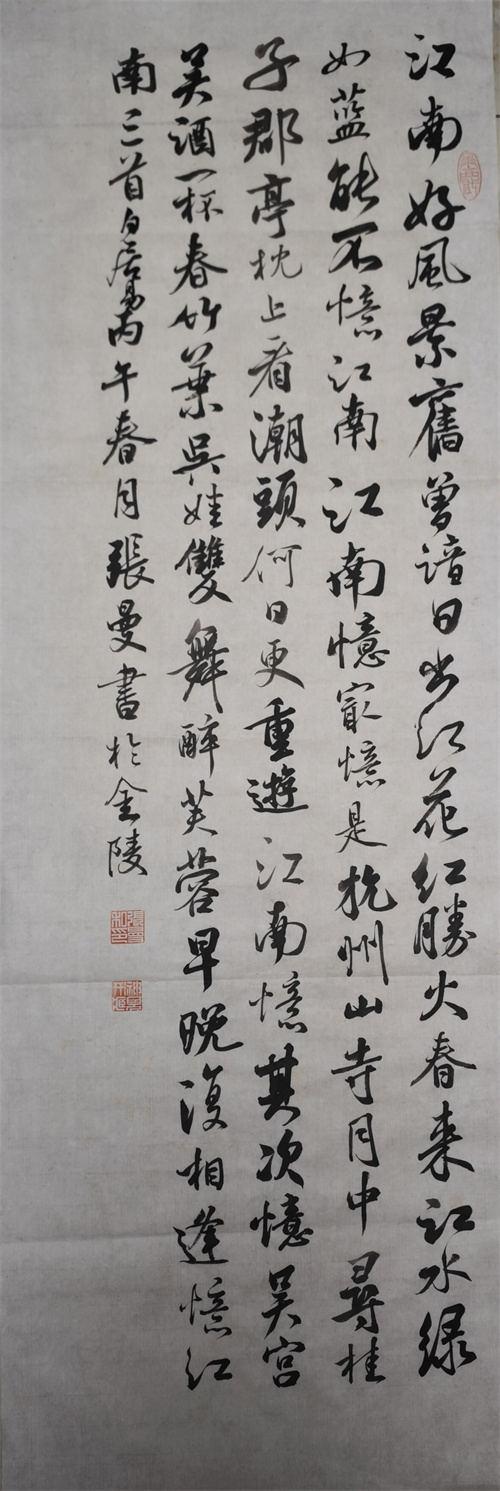 江南好風景舊曾諳日出江花紅勝火春來江水綠
如藍能不憶江南江南憶宼憶是杭州山寺月中尋桂
子郡亭枕上看潮頭何日更重遊江南憶其次憶吴宫
吴酒一杯春竹葉吳娃雙舞醉芙蓉早晚復相逢憶江
南三首白居易丙午春月張曼書於金陵